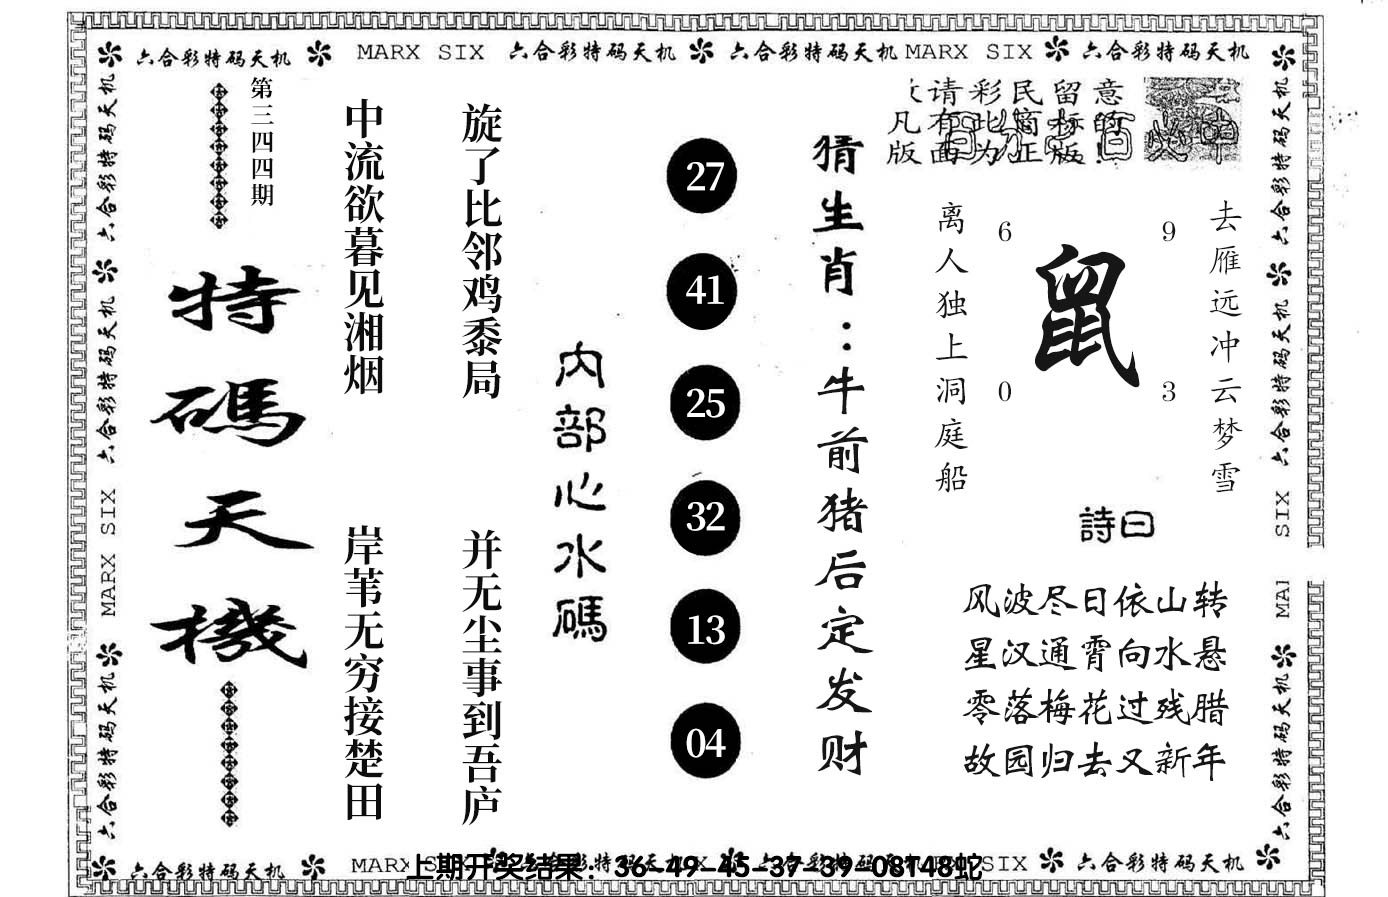 六合彩特码天机 MARX SIX 六合彩特码天机 六合彩特码天机 MARX SIX 六合彩特码天机
第三四四期
特碼天機
中流欲暮见湘烟
岸苇无穷接楚田
旋了比邻鸡黍局
并无尘事到吾庐
内部心水碼
27
41
25
32
13
04
猜生肖：牛前猪后定发财
请彩民留意
凡有此商标的
版面为正版!
离人独上洞庭船
6
9
鼠
0
3
去雁远冲云梦雪
詩曰
风波尽日依山转
星汉通霄向水悬
零落梅花过残腊
故园归去又新年
六合彩特码天机
六合彩特码天机
MARX SIX
六合彩特码天机
六合彩特码天机
六合彩特码天机
SIX
MAI
六合彩特码天机
六合彩特码天机 MARX SIX 六合彩特码天机 六合彩特码天机 MARX SIX 六合彩特码天机
上期开奖结果：36-49-45-37-39-08T48蛇